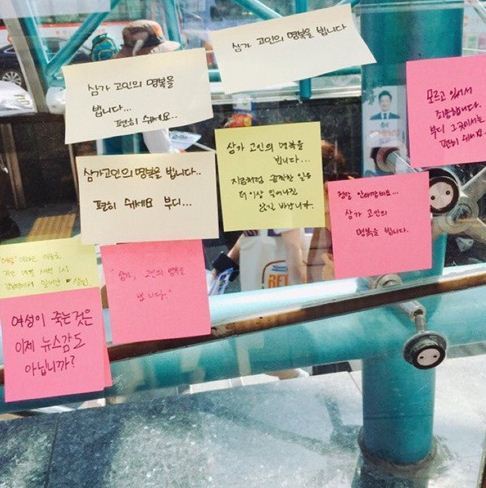 삼가 고인의 명복을
빕니다...
편히 쉬세요..
삼가 고인의 명복을 빕니다
모르고 있어서
죄송합니다.
부디 그곳에서는
편히 쉬세요.
삼가 고인의 명복을 빕니다..
편히 쉬세요 부디...
삼가 고인의 명복을
빕니다...
지금처럼 끔찍한 일은
더 이상 일어나진
않길 바랍니다.
정말 안타깝네요...
삼가 고인의
명복을 빕니다.
"삼가, 고인의 명복을
빕니다."
여성이 죽는것은
이제 뉴스감도
아닙니까?